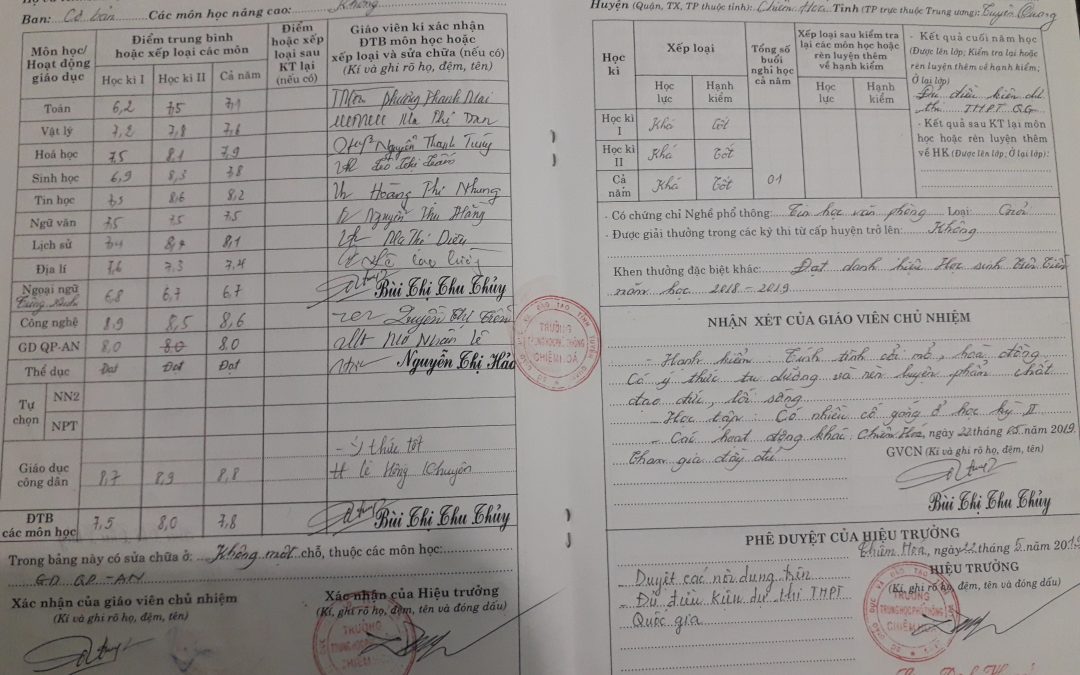 Ban: Cơ bản Các môn học nâng cao: Không
Môn học/ Hoạt động giáo dục
Điểm trung bình hoặc xếp loại các môn
Học kì I Học kì II Cả năm
Điểm hoặc xếp loại sau KT lại (nếu có)
Giáo viên kí xác nhận ĐTB môn học hoặc xếp loại và sửa chữa (nếu có) (Kí và ghi rõ họ, đệm, tên)
Toán 6,2 7,5 7,1
Vật lý 7,2 7,8 7,6 Ma Thị
Hoá học 7,5 8,1 7,9 Nguyễn Thanh Tùng
Sinh học 6,9 8,3
Tin học 7,5 8,6 8,2 Hoàng Thị Nhung
Ngữ văn 7,5 7,5 7,5 Nguyễn Thu Hằng
Lịch sử 8,1 Ma Thị
Địa lí 7,6 7,3 7,4
Ngoại ngữ Tiếng Anh 6,8 6,7 6,7 Bùi Thị Thu Thủy
Công nghệ 8,9 8,5 8,6
GD QP-AN 8,0 8.0 8.0
Thể dục Đạt Đạt Đạt Nguyễn Thị Hảo
Tự chọn NN2
NPT
Giáo dục công dân 8,7 8,9 8,8
Ý thức tốt
Lê Hồng Khuyên
ĐTB các môn học 7,5 8,0 7,8 Bùi Thị Thu Thủy
Trong bảng này có sửa chữa ở: Không một chỗ, thuộc các môn học:
GD QP-AN
Xác nhận của giáo viên chủ nhiệm
(Kí và ghi rõ họ, đệm, tên)
Xác nhận của Hiệu trưởng
(Kí, ghi rõ họ, đệm, tên và đóng dấu)
TRƯỜNG
TRUNG HỌC PHỔ THÔNG
CHIÊM HOÁ
Huyện (Quận, TX, TP thuộc tỉnh): Chiêm Hoá Tỉnh (TP trực thuộc Trung ương): Tuyên Quang
Học kì
Xếp loại
Học lực Hạnh kiểm
Tổng số buổi nghỉ học cả năm
Xếp loại sau kiểm tra lại các môn học hoặc rèn luyện thêm về hạnh kiểm
Học lực Hạnh kiểm
- Kết quả cuối năm học
(Được lên lớp; Kiểm tra lại hoặc
rèn luyện thêm về hạnh kiểm;
Ở lại lớp)
Đủ điều kiện dự
thi THPT QG
- Kết quả sau KT lại môn
học hoặc rèn luyện thêm
về HK (Được lên lớp; Ở lại lớp):
Học kì I Khá Tốt
Học kì II Khá Tốt
Cả năm Khá Tốt 01
- Có chứng chỉ Nghề phổ thông: Tin học văn phòng Loại: Giỏi
- Được giải thưởng trong các kỳ thi từ cấp huyện trở lên: Không
Khen thưởng đặc biệt khác: Đạt danh hiệu Học sinh Tiên Tiến
năm học 2018 - 2019
NHẬN XÉT CỦA GIÁO VIÊN CHỦ NHIỆM
- Hạnh kiểm: Tính tình cởi mở, hoà đồng.
Có ý thức tu dưỡng và rèn luyện phẩm chất
đạo đức, lối sống
- Học tập: Có nhiều cố gắng ở học kỳ II
- Các hoạt động khác: Chiêm Hoá, ngày 22 tháng 05 năm 2019
Tham gia đầy đủ.
GVCN (Kí và ghi rõ họ, đệm, tên)
Bùi Thị Thu Thủy
PHÊ DUYỆT CỦA HIỆU TRƯỞNG
Chiêm Hoá, ngày 22 tháng 5 năm 2019
HIỆU TRƯỞNG
(Kí, ghi rõ họ, đệm, tên và đóng dấu)
- Duyệt các nội dung trên
- Đủ điều kiện dự thi THPT
Quốc gia
TRƯỜNG
TRUNG HỌC PHỔ THÔNG
CHIÊM HOÁ